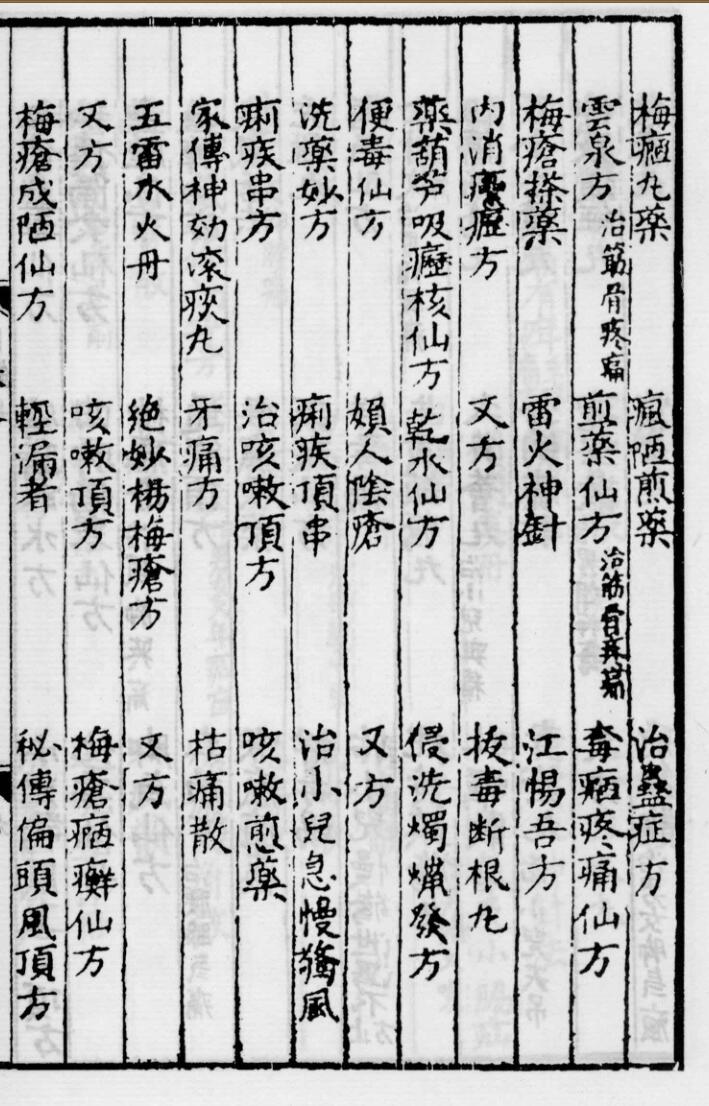 梅瘟丸藥　瘋陋煎藥　治蠱症方
雲泉方 治筋骨疼痛　煎藥仙方 治筋骨疼痛　毒痛疼痛仙方
梅瘡搽藥　雷火神針　江惕吾方
內消瘰癧方　又方　拔毒斷根丸
藥葫芦吸癧核仙方　乾水仙方　侵洗燭蠟發方
便毒仙方　婦人陰瘡　又方
洗藥妙方　痢疾頂串　治小兒急慢驚風
痢疾串方　治咳嗽頂方　咳嗽煎藥
家傳神効滚痰丸　牙痛方　枯痛散
五雷水火丹　絶妙楊梅瘡方　又方
又方　咳嗽頂方　梅瘡癬仙方
梅瘡成陋仙方　輕漏者　秘傳偏頭風頂方